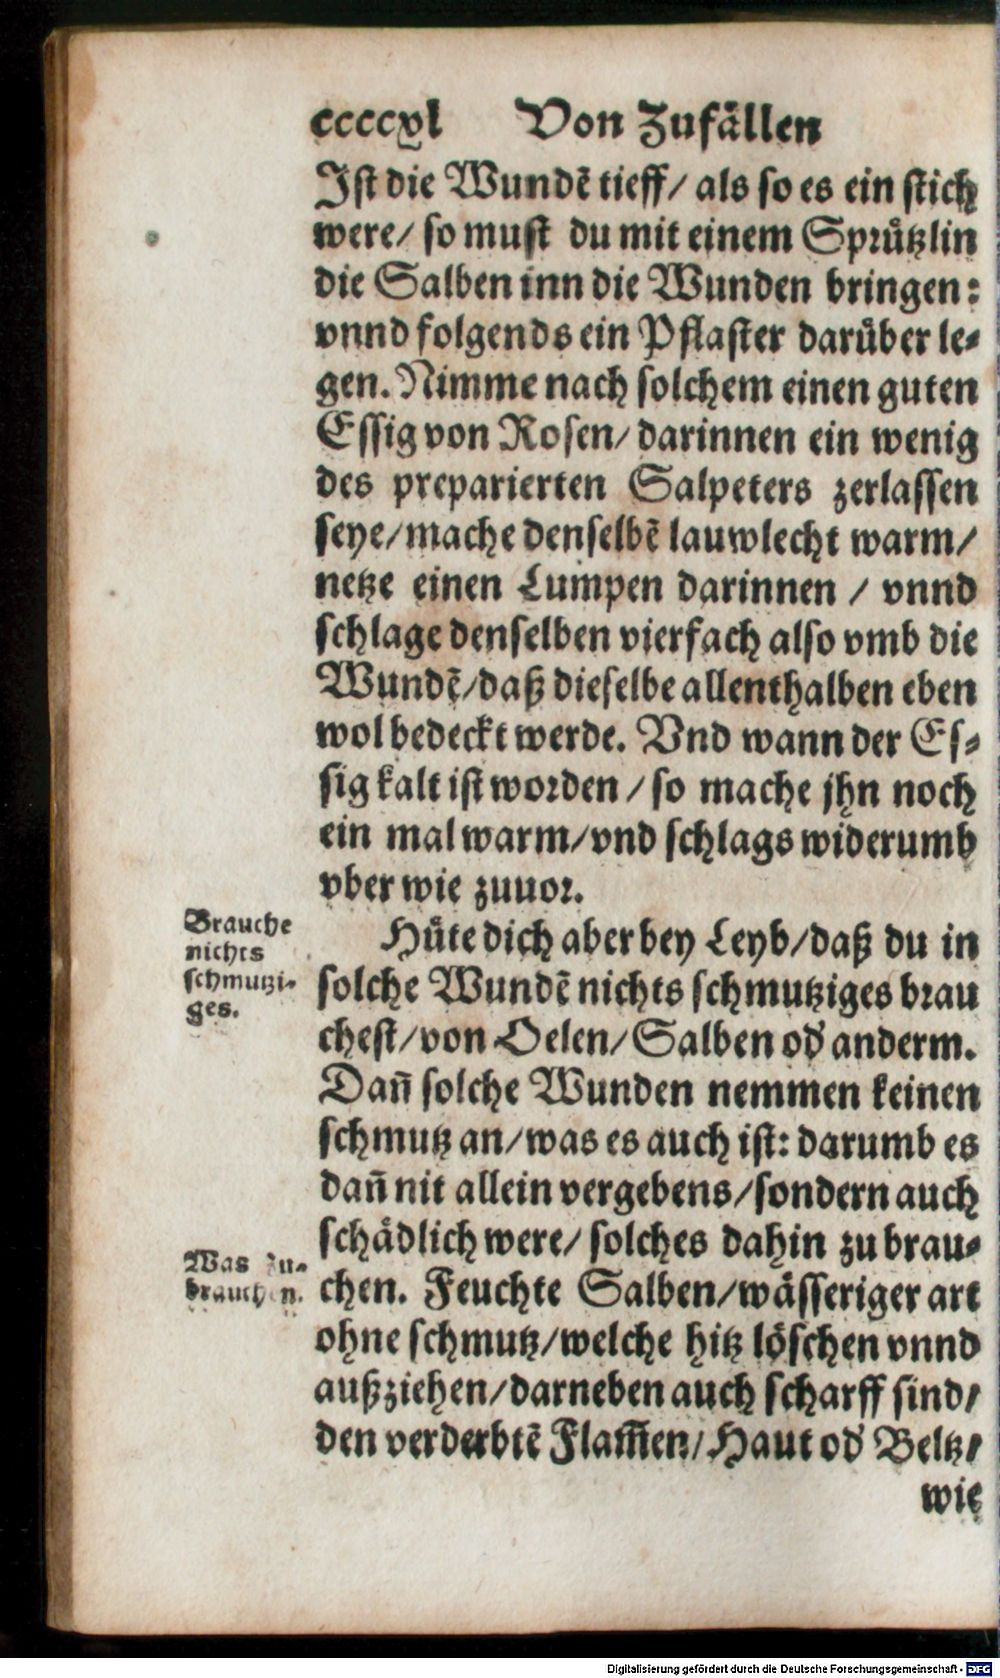 ccccxl Von Zufaͤllen
Ist die Wundẽ tieff/ als so es ein stich
were/ so must du mit einem Spruͤtzlin
die Salben inn die Wunden bringen:
vnnd folgends ein Pflaster daruͤber le⸗
gen. Nimme nach solchem einen guten
Essig von Rosen/ darinnen ein wenig
des preparierten Salpeters zerlassen
seye/ mache denselbẽ lauwlecht warm/
netze einen Lumpen darinnen / vnnd
schlage denselben vierfach also vmb die
Wundẽ/ daß dieselbe allenthalben eben
wol bedeckt werde. Vnd wann der Es⸗
sig kalt ist worden / so mache jhn noch
ein mal warm/ vnd schlags widerumb
vber wie zuuor.
Brauche
nichts
schmutzi⸗
ges.
Huͤte dich aber bey Leyb/ daß du in
solche Wundẽ nichts schmutziges brau
chest/ von Oelen/ Salben od' anderm.
Dañ solche Wunden nemmen keinen
schmutz an/ was es auch ist: darumb es
dañ nit allein vergebens/ sondern auch
schaͤdlich were/ solches dahin zu brau⸗
Was zu⸗
brauchen.
chen. Feuchte Salben/ waͤsseriger art
ohne schmutz/ welche hitz loͤschen vnnd
außziehen/ darneben auch scharff sind/
den verderbtẽ Flam̃en/ Haut od' Beltz/
wie
Digitalisierung gefördert durch die Deutsche Forschungsgemeinschaft - DFG